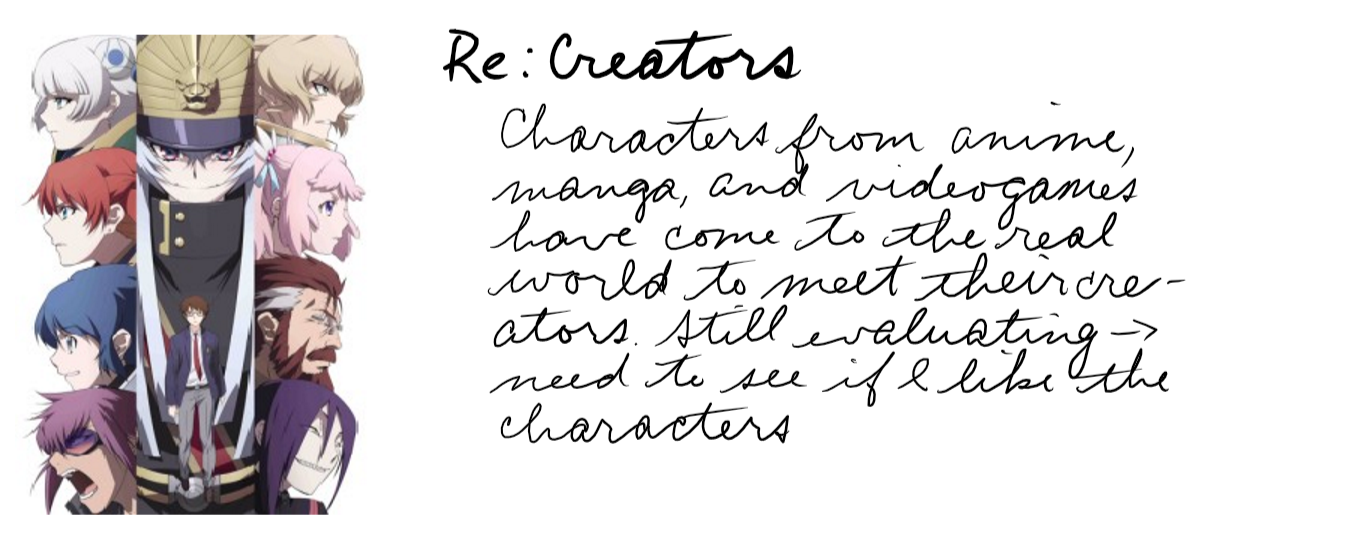 Re: Creators
Characters from anime,
manga, and videogames
have come to the real
world to meet their cre-
ators. Still evaluating ->
need to see if I like the
characters